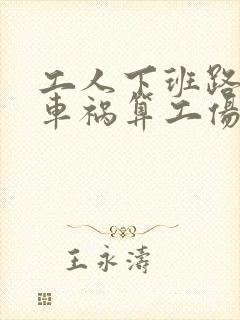 工人下班路
車祸算工傷
王永濤